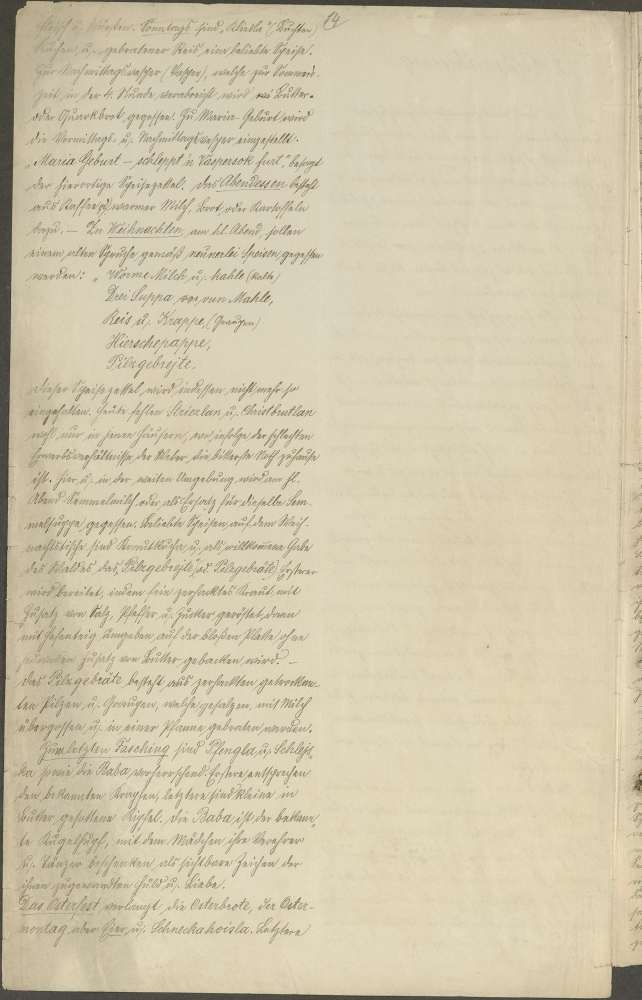 14
Fleisch u. Knödeln. Sonntags sind „Klieble“ (Buchten)
Kuchen, u. gebratener Reis, eine beliebte Speise.
Zur Nachmittagsvesper (Vesper), welche zur Sommers-
zeit, in der 4. Stunde, verabreicht wird, wird Butter-
oder Quarkbrot gegessen. Zu Maria-Geburt wird
die Vormittags- u. Nachmittagsvesper eingestellt.
„Maria Geburt – schleppt 'n Vaspersok furt“, besagt
der hierortige Speisezettel. Das Abendessen besteht
aus Kaffee od. warmer Milch, Brot oder Kartoffeln
dazu. – Zu Weihnachten, am hl. Abend, sollen
einem alten Spruche gemäß neunerlei Speisen gegessen
werden: „Worme Milch u. kahle (kalte)
Drei Suppa, vun Mahle,
Reis u. Krappe, (Graupen)
Hierschepappe,
Pilzgebrejte.
Dieser Speisezettel wird indessen nicht mehr so
eingehalten. Heute fehlen Striezlan u. Christbrutlan
nicht nur in jenen Häusern, wo infolge der schlechten
Erwerbsverhältnisse der Väter, die bitterste Noth zuhause
ist. Hier u. in der weiten Umgebung wird am hl.
Abend Semmelmilch oder als Ersatz für dieselbe Sem-
melsuppe gegessen. Beliebte Speisen auf dem Weih-
nachtstische sind Krautkucha u. als willkommene Gabe
des Waldes das Pilzgebrejte, od. Pilzgebräte. Ersterer
wird bereitet, indem fein zerhacktes Kraut mit
Zusatz von Salz, Pfeffer u. Zucker geröstet, dann
mit Hefenteig umgeben, auf der bloßen Platte ohne
Zusatz von Butter gebacken wird. –
Das Pilzgebräte besteht aus zerhackten getrockne-
ten Pilzen u. Graupen, welche gesalzen, mit Milch
übergossen u. in einer Pfanne gebraten werden.
Zum letzten Fasching sind Pfengla u. Schlejß-
ka sowie die Baba, vorherrschend. Erstere entsprechen
den bekannten Krapfen, letztere sind kleine in
Butter gesottene Kipfel. Die Baba ist der bekann-
te Kugelhupf, mit dem Mädchen ihre Verehrer
u. Tänzer beschenken, als sichtbare Zeichen der
ihnen zugewandten Huld u. Liebe.
Das Osterfest verlangt die Osterbrote, der Oster-
montag aber Eier u. Schneckahoisla. Letztere